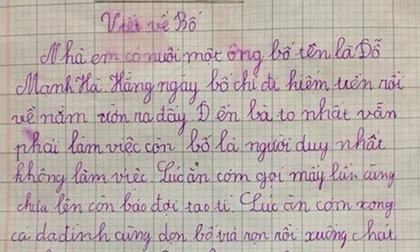 Viết về Bố
Nhà em có nuôi một ông bố tên là Đỗ
Mạnh Hà. Hằng ngày bố chỉ đi kiếm tiền rồi
về nằm ườn ra đấy Đến bà to nhất vẫn
phải làm việc còn bố là người duy nhất
không làm việc Lúc ăn cơm gọi mấy lần cũng
chưa lên còn bảo đợi tao tí. Lúc ăn cơm xong
cả da đình cũng dọn bố trả rọn rồi xuống chat